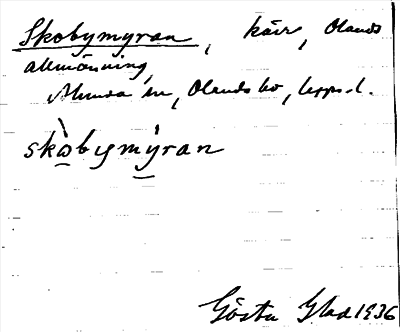 Skobymyran, kärr, Olands
allmänning,
Alunda sn, Olands hd, Upps. l.
skò̠bymý̠ran
Gösta Glad 1936